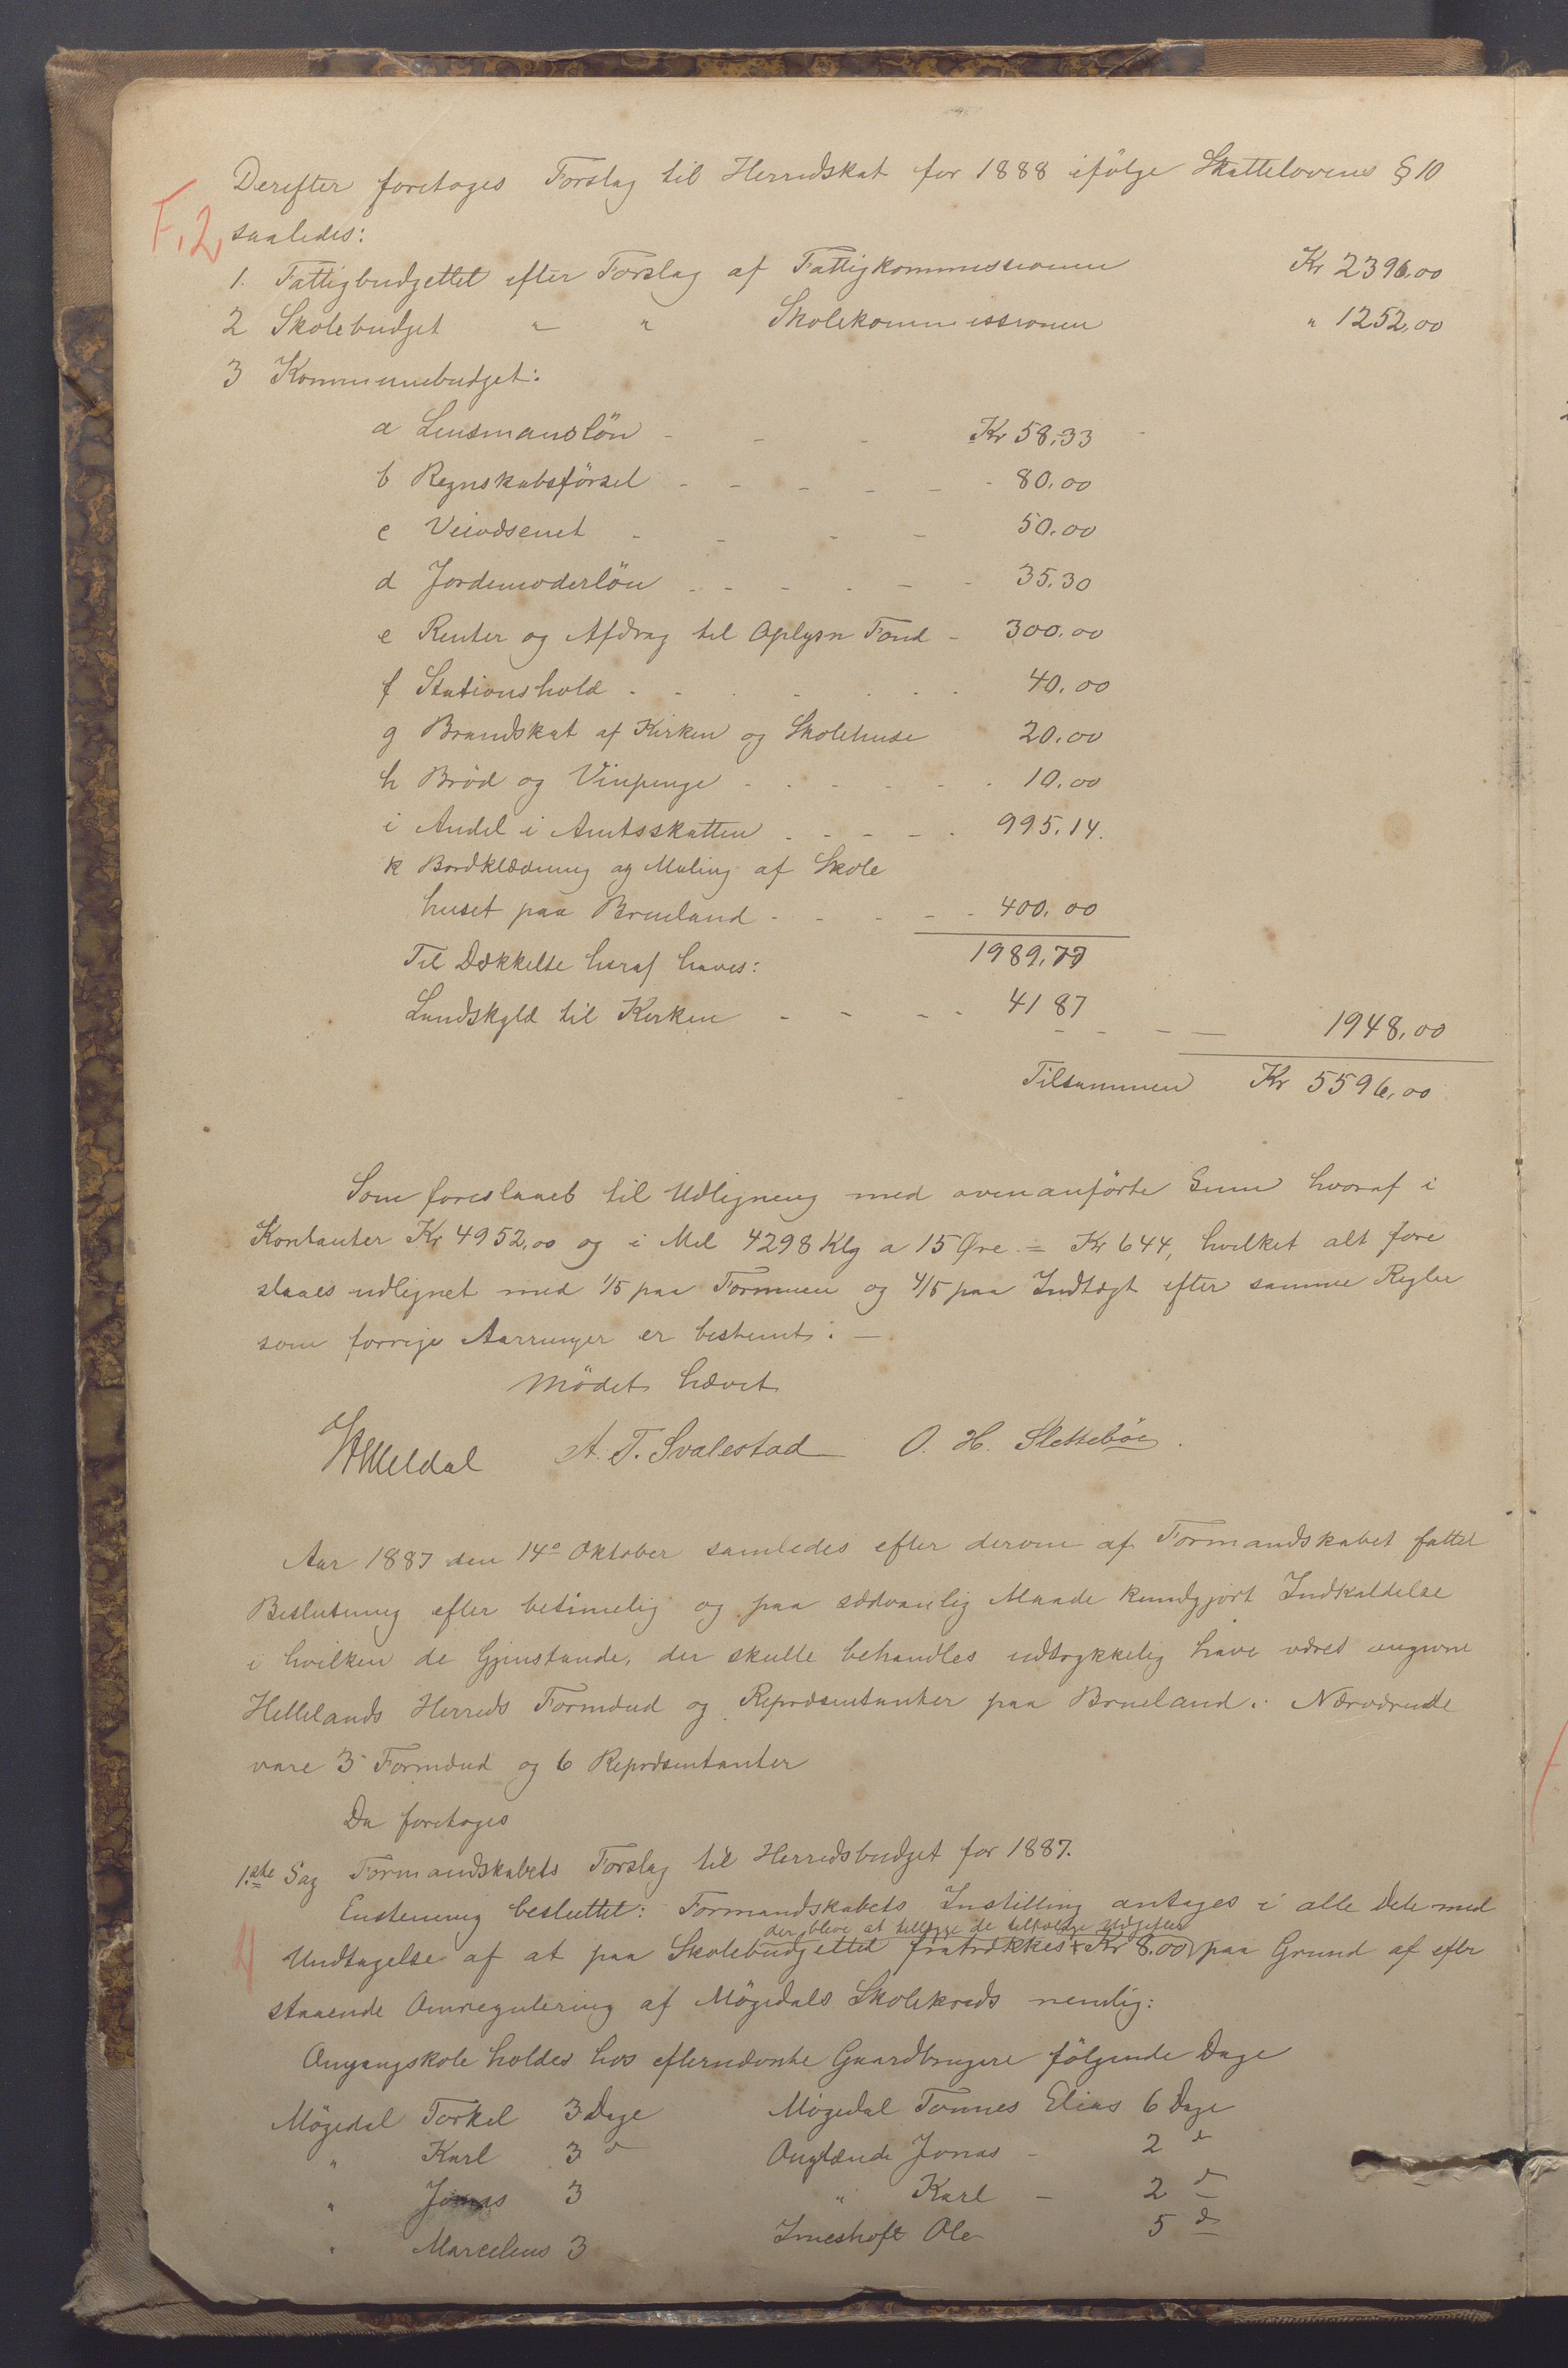 Derefter foretoges Forslag til Herredskat for 1888 ifölge Skattelovens § 10
F, 2,
saaledes:
1. Fattigbudgettet efter Forslag af Fattigkommissionen Kr 2396,00
2 Skolebudget " " Skolekommissionen " 1252,00
3 Kommunebudget:
a Lensmanslön - - - Kr 58,33 -
b Regnskabsförsel - - - - - - 80.00
c Veivæsenet - - - - 50.00
d Jordemoderlön - - - - - - 35.30
e Renter og Afdrag til Oplysn Fond - 300.00
f Stationshold - - - - - - - 40,00
g Brandskat af Kirken og Skolehuse 20.00
h Bröd og Vinpenge - - - - - - 10.00
i Andel i Amtsskatten - - - - - 995,14.
k Bordklædning og Maling af Skole
huset paa Brueland - - - - - 400,00
Til Dækkelse heraf haves: 1989,77
Landskyld til Kirken - - - - 41 87
- - - - 1948,00
Tilsammen Kr 5596,00
Som foreslaaes til Udligning med ovenanförte Sum hvoraf i
Kontanter Kr 4952,00 og i Mel 4298 Klg a 15 Øre = Kr 644, hvilket alt fore
slaaes udlignet med 1/5 paa Formuen og 4/5 paa Indtægt efter samme Regler
som forrige Aarringer er bestemt: —
Mödet hævet
Meldal A. T. Svalestad O. H. Sletteböe.
Aar 1887 den 14de Oktober samledes efter derom af Formandskabet fattet
Beslutning efter betimelig og paa sædvanlig Maade kundgjort Indkaldelse
i hvilken de Gjenstande, der skulle behandles udtrykkelig have været angivne
Hellelands Herreds Formænd og Repræsentanter paa Brueland. Nærværende
vare 3 Formænd og 6 Repræsentanter
Da foretoges
1.ste Sag Formandskabets Forslag til Herredsbudget for 1887.
Enstemmig besluttet: Formandskabets Instilling antages i alle Dele med
der bleve at tillægge de tilfældige Udgifter
Undtagelse af at paa Skolebudgettet fratrækkes Kr 8.00 paa Grund af efter
staaende Omregulering af Mögedals Skolekreds nemlig:
Omgangskole holdes hos efternævnte Gaardbrugere fölgende Dage
Mögedal Torkel 3 Dage Mögedal Tonnes Elias 6 Dage
" Karl 3 d Jonas - 2 d
" Jonas 3 " Karl - 2 d
" Marcelius 3 Ole 5 d